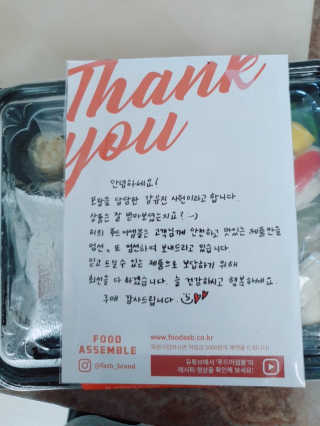 Thank
you
안녕하세요!
포장을 담당한 김유진 사원이라고 합니다.
상품은 잘 받아보셨는지요? :-)
저희 푸드어셈블은 고객님께 안전하고 맛있는 제품만을
엄선, 또 엄선하여 보내드리고 있습니다.
믿고 드실 수 있는 제품으로 보답하기 위해
최선을 다 하겠습니다. 늘 건강하시고 행복하세요.
구매 감사드립니다.
FOOD
ASSEMBLE
@fasb_brand
www.foodasb.co.kr
유튜브에서 '푸드어셈블'의
레시피 영상을 확인해 보세요!